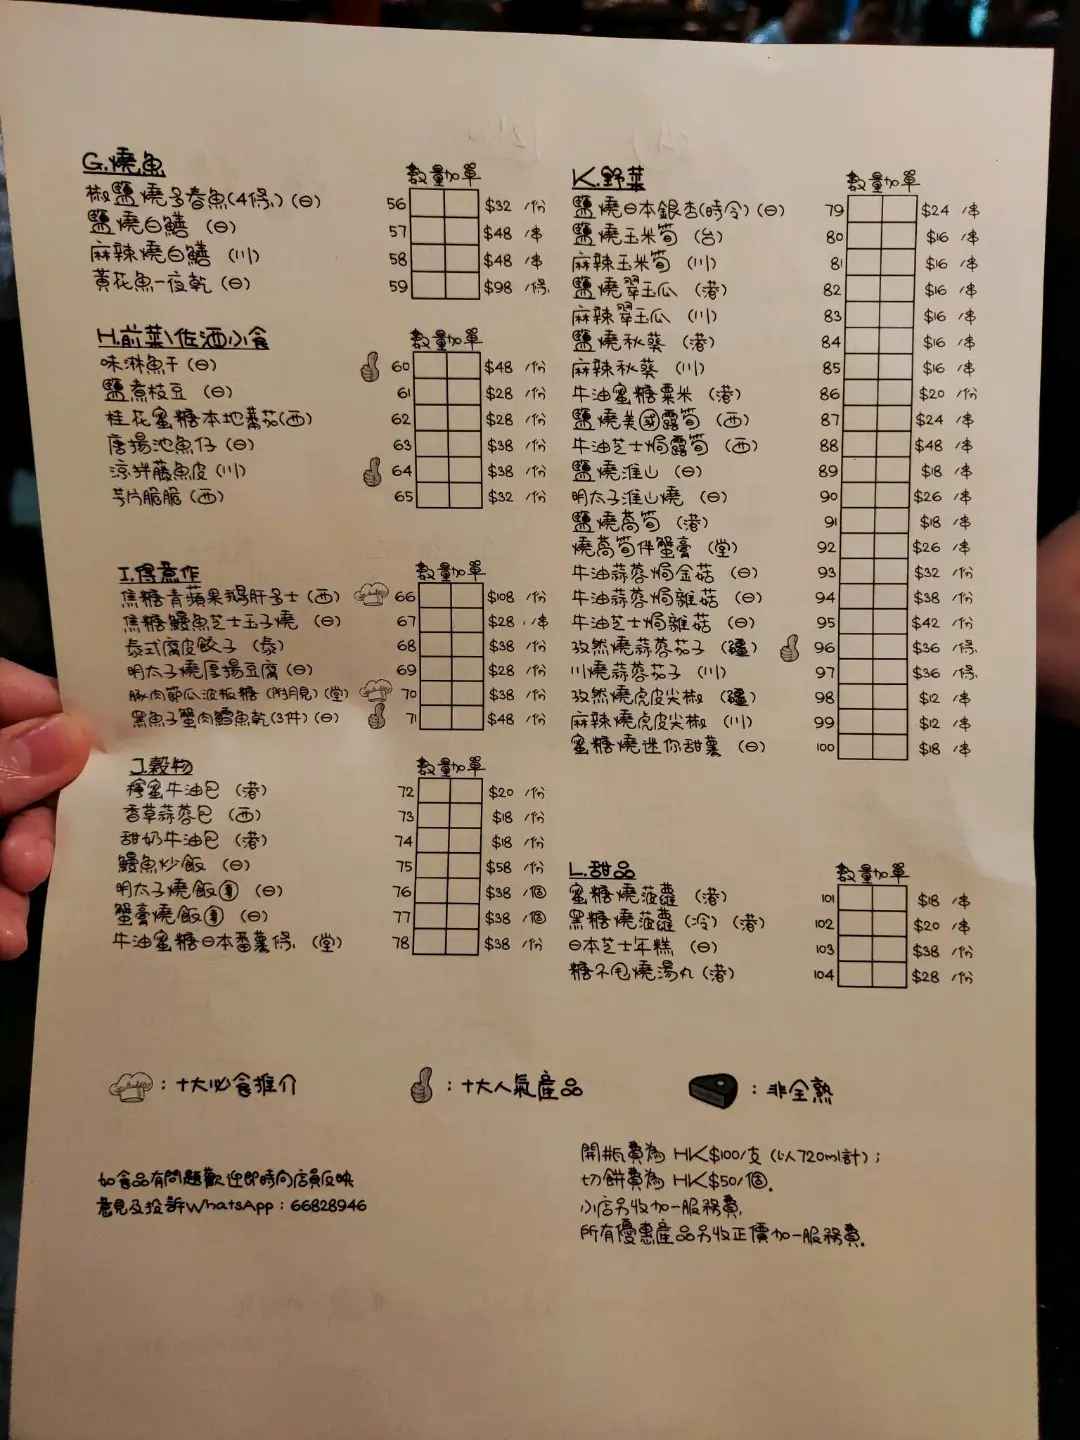 G.燒魚 數量加單
椒鹽燒多春魚(4條)(日) 56 $32 /份
鹽燒白鱔 (日) 57 $48 /串
麻辣燒白鱔 (川) 58 $48 /串
黃花魚一夜乾 (日) 59 $98 /條
H.前菜\佐酒小食 數量加單
味淋魚干(日) 60 $48 /份
鹽煮枝豆 (日) 61 $28 /份
桂花蜜糖本地蕃茄(西) 62 $28 /份
唐揚池魚仔(日) 63 $38 /份
涼拌藤魚皮(川) 64 $38 /份
芋片脆脆(西) 65 $32 /份
I.得意作 數量加單
焦糖青蘋果鵝肝多士(西) 66 $108 /份
焦糖鰻魚芝士玉子燒 (日) 67 $28 /串
泰式腐皮餃子 (泰) 68 $38 /份
明太子燒厚揚豆腐(日) 69 $28 /份
豚肉節瓜波板糖 (附月見)(堂) 70 $38 /份
黑魚子蟹肉鱈魚乾(3件)(日) 71 $48 /份
J.穀物 數量加單
檸蜜牛油包 (港) 72 $20 /份
香草蒜蓉包 (西) 73 $18 /份
甜奶牛油包 (港) 74 $18 /份
鰻魚炒飯 (日) 75 $58 /份
明太子燒飯團 (日) 76 $38 /個
蟹膏燒飯團 (日) 77 $38 /個
牛油蜜糖日本番薯條 (堂) 78 $38 /份
K.野菜 數量加單
鹽燒日本銀杏(時令)(日) 79 $24 /串
鹽燒玉米筍 (台) 80 $16 /串
麻辣玉米筍 (川) 81 $16 /串
鹽燒翠玉瓜 (港) 82 $16 /串
麻辣翠玉瓜 (川) 83 $16 /串
鹽燒秋葵 (港) 84 $16 /串
麻辣秋葵 (川) 85 $16 /串
牛油蜜糖粟米 (港) 86 $20 /份
鹽燒美國露筍 (西) 87 $24 /串
牛油芝士焗露筍 (西) 88 $48 /串
鹽燒淮山 (日) 89 $18 /串
明太子淮山燒 (日) 90 $26 /串
鹽燒萵筍 (港) 91 $18 /串
燒萵筍伴蟹膏 (堂) 92 $26 /串
牛油蒜蓉焗金菇 (日) 93 $32 /份
牛油蒜蓉焗雜菇 (日) 94 $38 /份
牛油芝士焗雜菇 (日) 95 $42 /份
孜然燒蒜蓉茄子 (疆) 96 $36 /條
川燒蒜蓉茄子 (川) 97 $36 /條
孜然燒虎皮尖椒 (疆) 98 $12 /串
麻辣燒虎皮尖椒 (川) 99 $12 /串
蜜糖燒迷你甜薯 (日) 100 $18 /串
L.甜品 數量加單
蜜糖燒菠蘿 (港) 101 $18 /串
黑糖燒菠蘿 (冷) (港) 102 $20 /串
日本芝士年糕 (日) 103 $38 /份
糖不甩燒湯丸(港) 104 $28 /份
:十大必食推介
:十大人氣產品
:非全熟
如食品有問題歡迎即時向店員反映
意見及投訴WhatsApp:66828946
開瓶費為 HK$100/支 (以720ml計);
切餅費為 HK$50/個.
小店另收加一服務費,
所有優惠產品另收正價加一服務費.